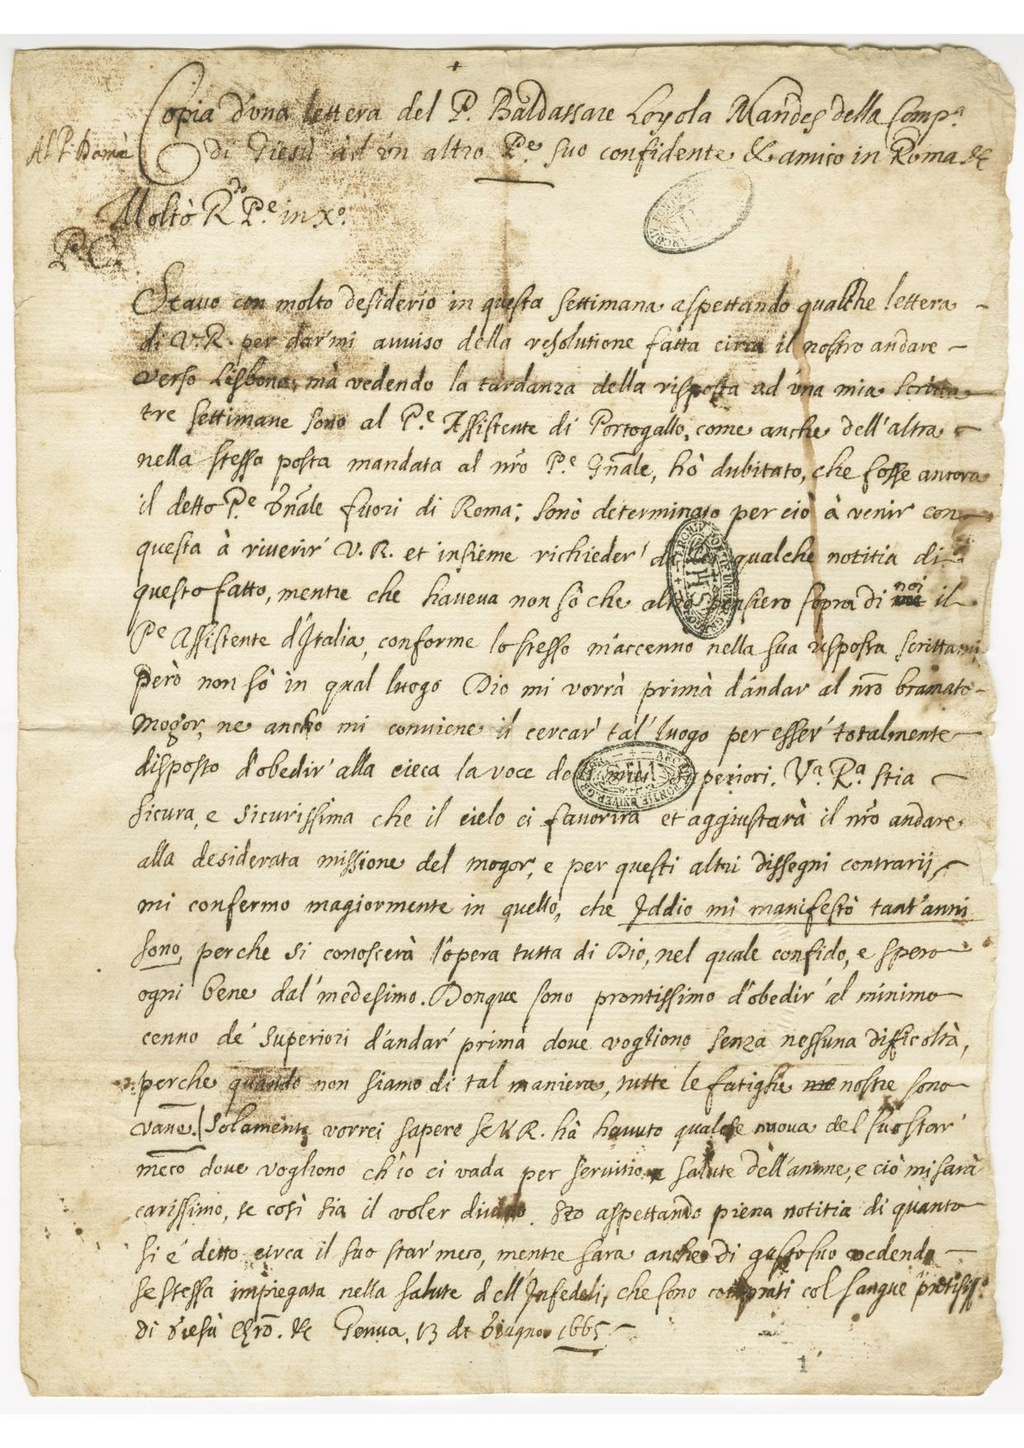 Copia d'una lettera del P. Baldassare Loyola Mandes della Comp.ª
di Giesù ad un altro P.e suo confidente & amico in Roma &c
Al P. Domã
Molto R.do P.e in X.o
P.
Stavo con molto desiderio in questa settimana aspettando qualche lettera
di V.R. per dar'mi avviso della resolutione fatta circa il nostro andare
verso Lisbona, mà vedendo la tardanza della risposta ad una mia scritta
tre settimane sono al P.e Assistente di Portogallo, come anche dell'altra
nella stessa posta mandata al nr̃o P.e Gñale, hò dubitato, che fosse ancora
il detto P.e Gñale fuori di Roma; sonò determinato per ciò à venir con
questa à riverir' V.R. et insieme richieder' qualche notitia di
questo fatto, mentre che haveva non sò che altro pensiero sopra di noi il
P.e Assistente d'Italia, conforme lo stesso m'accennò nella sua risposta scrittami
però non sò in qual luogo Dio mi vorrà primà d'andar al nr̃o bramato
Mogor, ne anche mi conviene il cercar' tal' luogo per esser' totalmente
disposto d'obedir' alla cieca la voce de miei superiori. V.ª R.ª stia
sicura, e sicurissima che il cielo ci favorirà et aggiustarà il nr̃o andare
alla desiderata missione del mogor, e per questi altri dissegni contrarij
mi confermo magiormente in quello, che Iddio mi manifestò tant'anni
sono, perche si conoscerà l'opera tutta di Dio, nel quale confido, e spero
ogni bene dal' medesimo. Donque sono prontissimo d'obedir' al minimo
cenno de' superiori d'andar' prima dove vogliono senza nessuna difficoltà,
perche quando non siamo di tal maniera, tutte le fatighe nostre sono
vane. Solamente vorrei sapere se V.R. hà havuto qualche nuova del suo star'
meco dove vogliono ch'io ci vada per servitio e salute dell'anime, e ciò mi sarà
carissimo, se così sia il voler divino. Sto aspettando piena notitia di quanto
si è detto circa il suo star' meco, mentre sarà anche di gusto suo vedendo
se stessa impiegata nella salute dell'Infedeli, che sono comprati col sangue
di Giesù Chr̃o. &c Genua, 13 di Giugno 1665
1